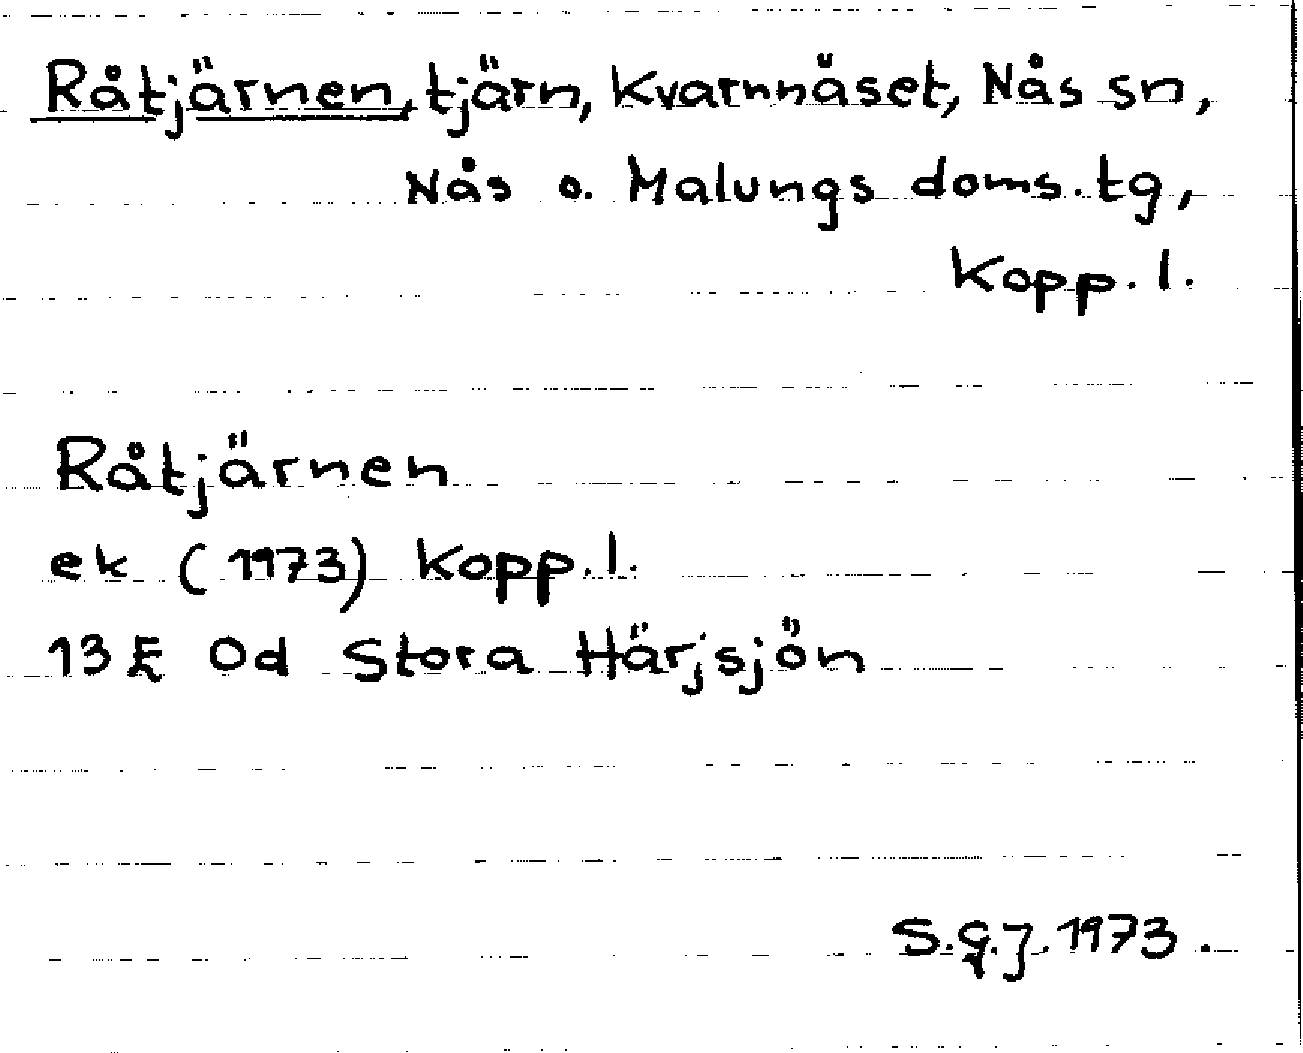 Råtjärnen, tjärn, Kvarnnäset, Nås sn,
Nås o. Malungs doms.tg,
Kopp. l.
Råtjärnen
ek (1973) Kopp. l.
13 E 0d Stora Härjsjön
S.G.J. 1973.